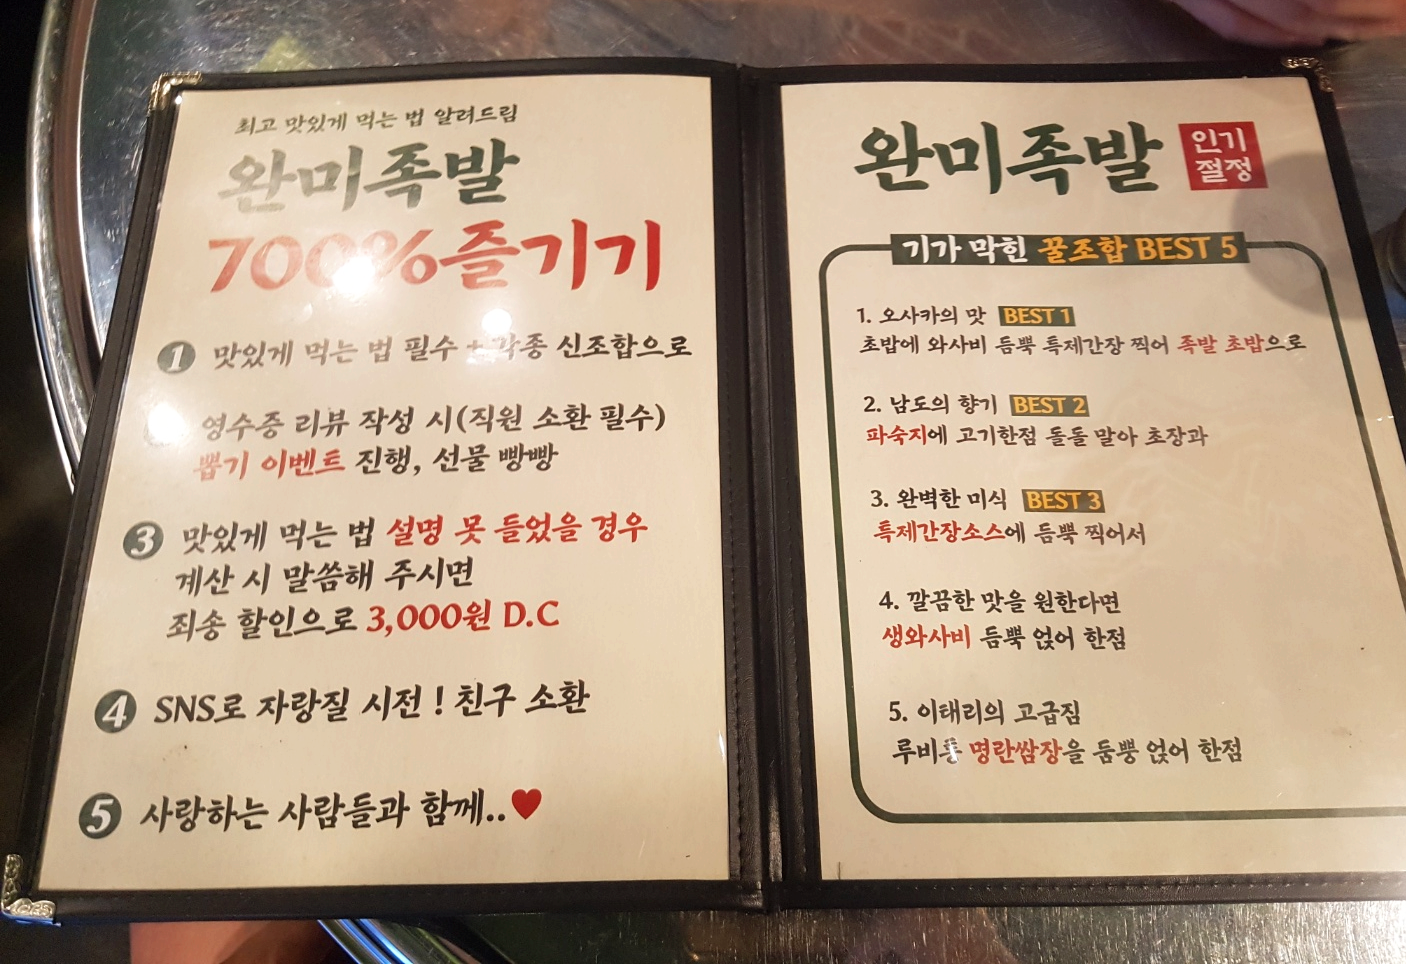 최고 맛있게 먹는 법 알려드림
완미족발
700%즐기기
1 맛있게 먹는 법 필수 + 각종 신조합으로
영수증 리뷰 작성 시(직원 소환 필수)
뽑기 이벤트 진행, 선물 빵빵
3 맛있게 먹는 법 설명 못 들었을 경우
계산 시 말씀해 주시면
죄송 할인으로 3,000원 D.C
4 SNS로 자랑질 시전 ! 친구 소환
5 사랑하는 사람들과 함께..♥
완미족발
인기
절정
기가 막힌 꿀조합 BEST 5
1. 오사카의 맛 BEST 1
초밥에 와사비 듬뿍 특제간장 찍어 족발 초밥으로
2. 남도의 향기 BEST 2
파숙지에 고기한점 돌돌 말아 초장과
3. 완벽한 미식 BEST 3
특제간장소스에 듬뿍 찍어서
4. 깔끔한 맛을 원한다면
생와사비 듬뿍 얹어 한점
5. 이태리의 고급짐
루비통 명란쌈장을 둠뿡 얹어 한점